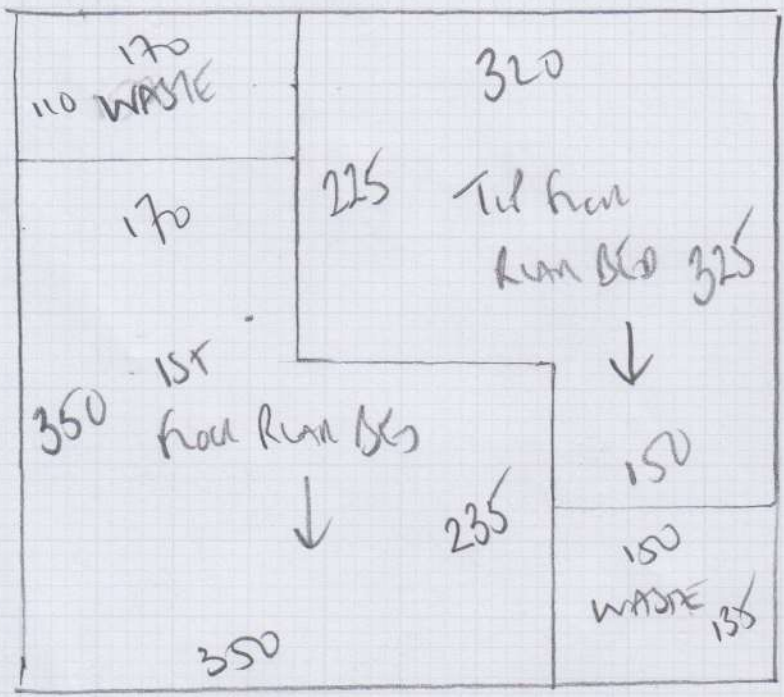 170
110 WASTE
320
225
Top Floor
Rear BED 325
170
1ST
350 Floor Rear BED
150
235
150
WASTE 135
350